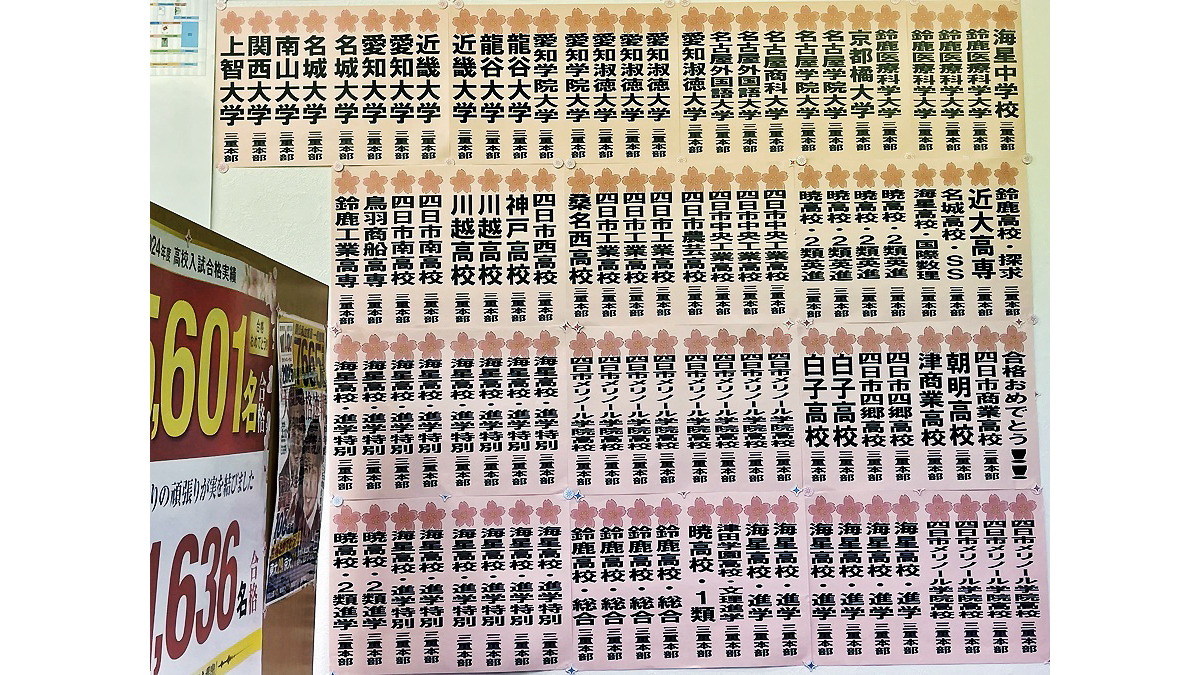 海星中学校 三重本部
鈴鹿医療科学大学 三重本部
鈴鹿医療科学大学 三重本部
鈴鹿医療科学大学 三重本部
鈴鹿医療科学大学 三重本部
京都橘大学 三重本部
名古屋学院大学 三重本部
名古屋学院大学 三重本部
名古屋商科大学 三重本部
名古屋外国語大学 三重本部
名古屋外国語大学 三重本部
愛知淑徳大学 三重本部
愛知淑徳大学 三重本部
愛知淑徳大学 三重本部
愛知淑徳大学 三重本部
愛知淑徳大学 三重本部
愛知学院大学 三重本部
龍谷大学 三重本部
龍谷大学 三重本部
近畿大学 三重本部
近畿大学 三重本部
愛知大学 三重本部
愛知大学 三重本部
名城大学 三重本部
名城大学 三重本部
南山大学 三重本部
関西大学 三重本部
上智大学 三重本部
鈴鹿高校・探求 三重本部
近大高専 三重本部
名城高校・SS 三重本部
海星高校・国際数理 三重本部
暁高校・2類英進 三重本部
暁高校・2類英進 三重本部
暁高校・2類英進 三重本部
暁高校・2類英進 三重本部
四日市中央工業高校 三重本部
四日市中央工業高校 三重本部
四日市中央工業高校 三重本部
四日市農芸高校 三重本部
四日市工業高校 三重本部
四日市工業高校 三重本部
四日市工業高校 三重本部
桑名西高校 三重本部
四日市西高校 三重本部
神戸高校 三重本部
川越高校 三重本部
川越高校 三重本部
四日市南高校 三重本部
四日市南高校 三重本部
鳥羽商船高専 三重本部
鈴鹿工業高専 三重本部
合格おめでとう!!
四日市商業高校 三重本部
朝明高校 三重本部
津商業高校 三重本部
四日市四郷高校 三重本部
四日市四郷高校 三重本部
白子高校 三重本部
白子高校 三重本部
四日市メリノール学院高校 三重本部
四日市メリノール学院高校 三重本部
四日市メリノール学院高校 三重本部
四日市メリノール学院高校 三重本部
四日市メリノール学院高校 三重本部
四日市メリノール学院高校 三重本部
四日市メリノール学院高校 三重本部
四日市メリノール学院高校 三重本部
海星高校・進学特別 三重本部
海星高校・進学特別 三重本部
海星高校・進学特別 三重本部
海星高校・進学特別 三重本部
海星高校・進学特別 三重本部
海星高校・進学特別 三重本部
海星高校・進学特別 三重本部
海星高校・進学特別 三重本部
四日市メリノール学院高校 三重本部
四日市メリノール学院高校 三重本部
四日市メリノール学院高校 三重本部
四日市メリノール学院高校 三重本部
海星高校・進学 三重本部
海星高校・進学 三重本部
海星高校・進学 三重本部
海星高校・進学 三重本部
海星高校・進学 三重本部
海星高校・進学 三重本部
津田学園高校・文理進学 三重本部
暁高校・1類 三重本部
鈴鹿高校・総合 三重本部
鈴鹿高校・総合 三重本部
鈴鹿高校・総合 三重本部
鈴鹿高校・総合 三重本部
海星高校・進学特別 三重本部
海星高校・進学特別 三重本部
海星高校・進学特別 三重本部
海星高校・進学特別 三重本部
海星高校・進学特別 三重本部
海星高校・進学特別 三重本部
暁高校・2類進学 三重本部
暁高校・2類進学 三重本部
24年度 高校入試合格実績
合格おめでとう
,601名合格
りの頑張りが実を結びました
,636名合格